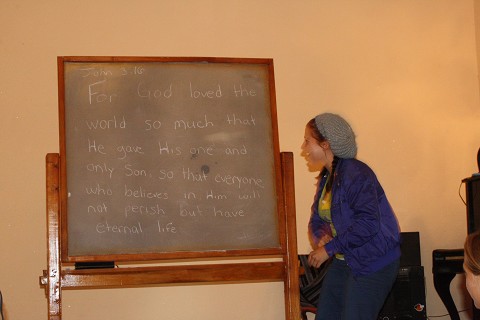 John 3:16
For God loved the
world so much that
He gave His one and
only Son, so that everyone
who believes in Him will
not perish but have
eternal life